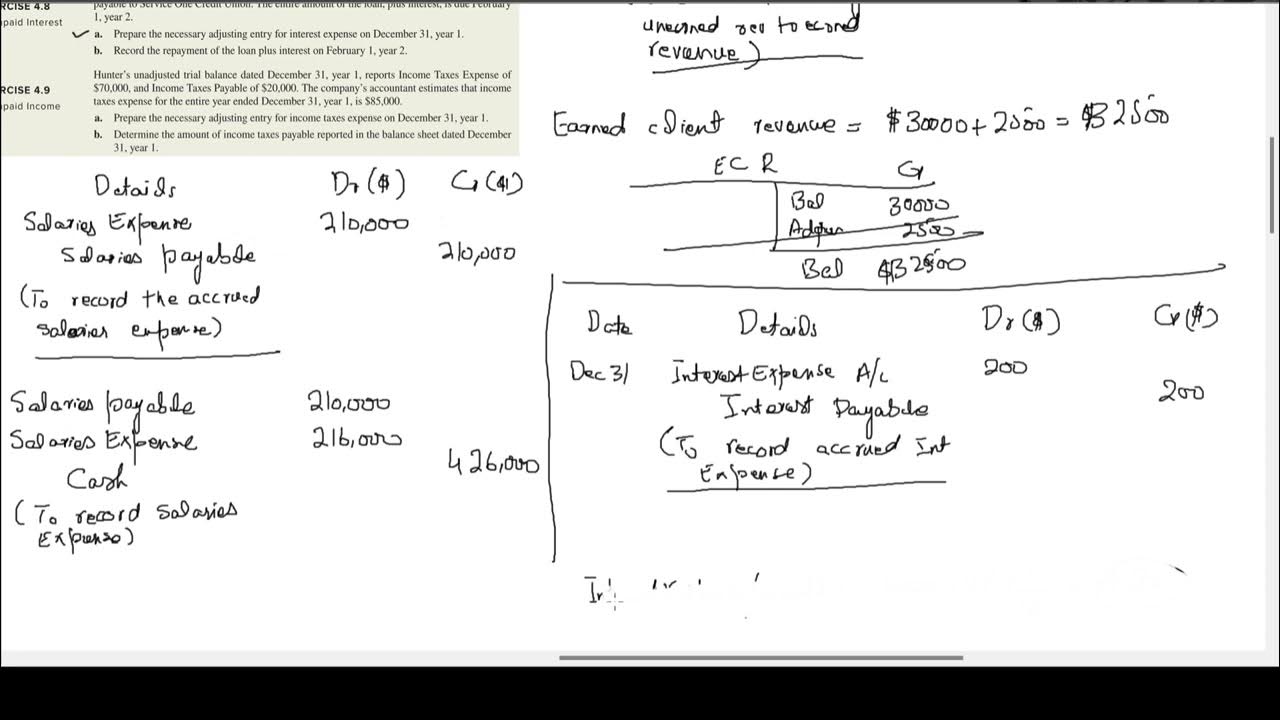 RCISE 4.8
paid Interest
payable to Service One Credit Union. The entire amount of the loan, plus interest, is due February
1, year 2.
a. Prepare the necessary adjusting entry for interest expense on December 31, year 1.
b. Record the repayment of the loan plus interest on February 1, year 2.
RCISE 4.9
paid Income
Hunter's unadjusted trial balance dated December 31, year 1, reports Income Taxes Expense of
$70,000, and Income Taxes Payable of $20,000. The company's accountant estimates that income
taxes expense for the entire year ended December 31, year 1, is $85,000.
a. Prepare the necessary adjusting entry for income taxes expense on December 31, year 1.
b. Determine the amount of income taxes payable reported in the balance sheet dated December
31, year 1.
Details Dr ($) Cr ($)
Salaries Expense 210,000
Salaries payable 210,000
(To record the accrued
salaries expense)
Salaries payable 210,000
Salaries Expense 216,000
Cash 426,000
(To record Salaries
Expense)
revenue)
Earned client revenue = $30000 + 2500 = $32500
ECR Cr
Bal 30000
2500
Bal $32500
Date Details Dr ($) Cr ($)
Dec 31 Interest Expense A/c 200
Interest Payable 200
(To record accrued Int
Expense)